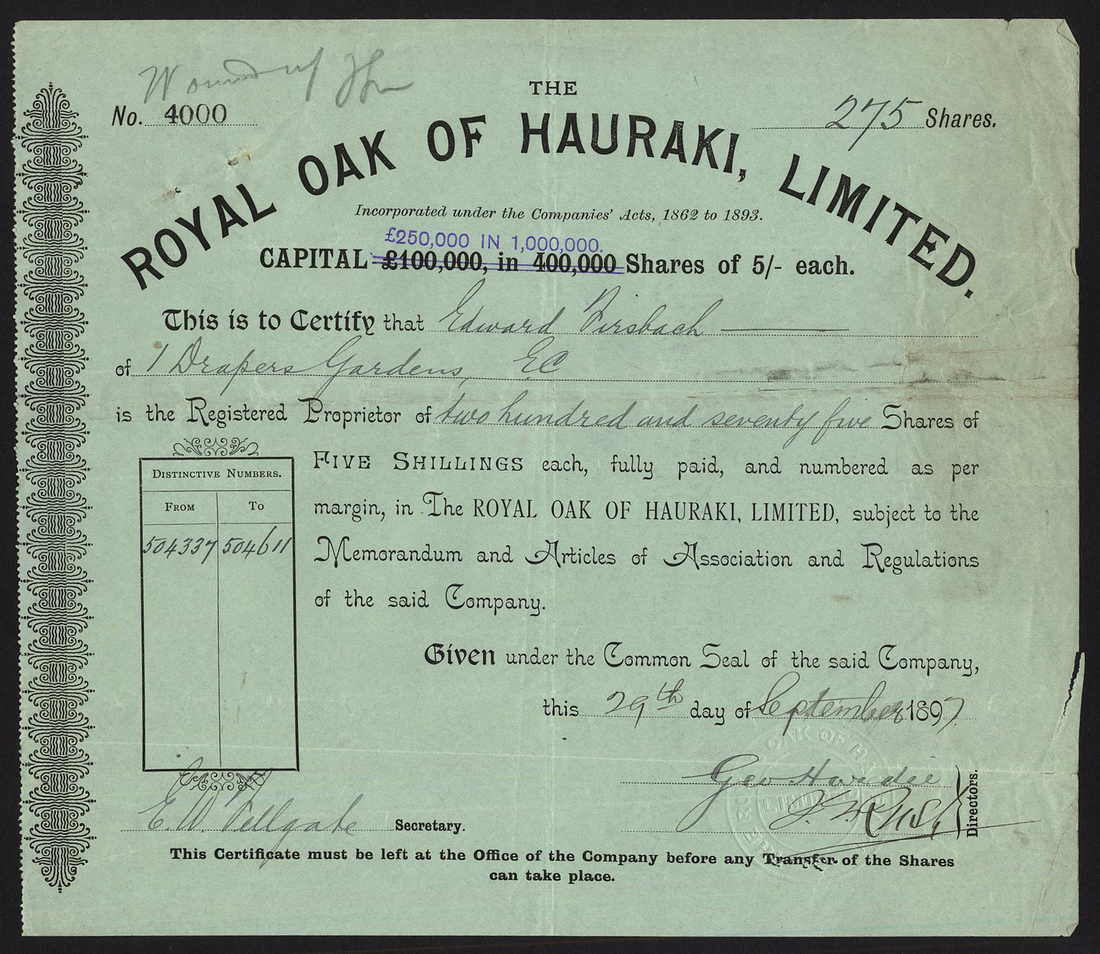 Wound up
THE
No. 4000
275 Shares.
ROYAL OAK OF HAURAKI, LIMITED.
Incorporated under the Companies' Acts, 1862 to 1893.
£250,000 IN 1,000,000.
CAPITAL £100,000, in 400,000 Shares of 5/- each.
This is to Certify that Edward Birsbach
of 1 Drapers Gardens, EC
is the Registered Proprietor of two hundred and seventy five Shares of
FIVE SHILLINGS each, fully paid, and numbered as per
margin, in The ROYAL OAK OF HAURAKI, LIMITED, subject to the
Memorandum and Articles of Association and Regulations
of the said Company.
DISTINCTIVE NUMBERS.
FROM TO
504337 504611
Given under the Common Seal of the said Company,
this 29th day of September 1897
Geo Hardie
E. W. Fellgate Secretary.
Directors.
This Certificate must be left at the Office of the Company before any Transfer of the Shares
can take place.